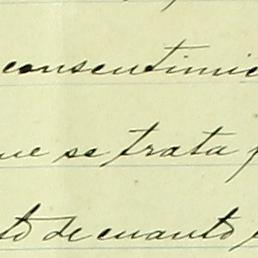 consentimie
ue se trata p
sto de cuanto